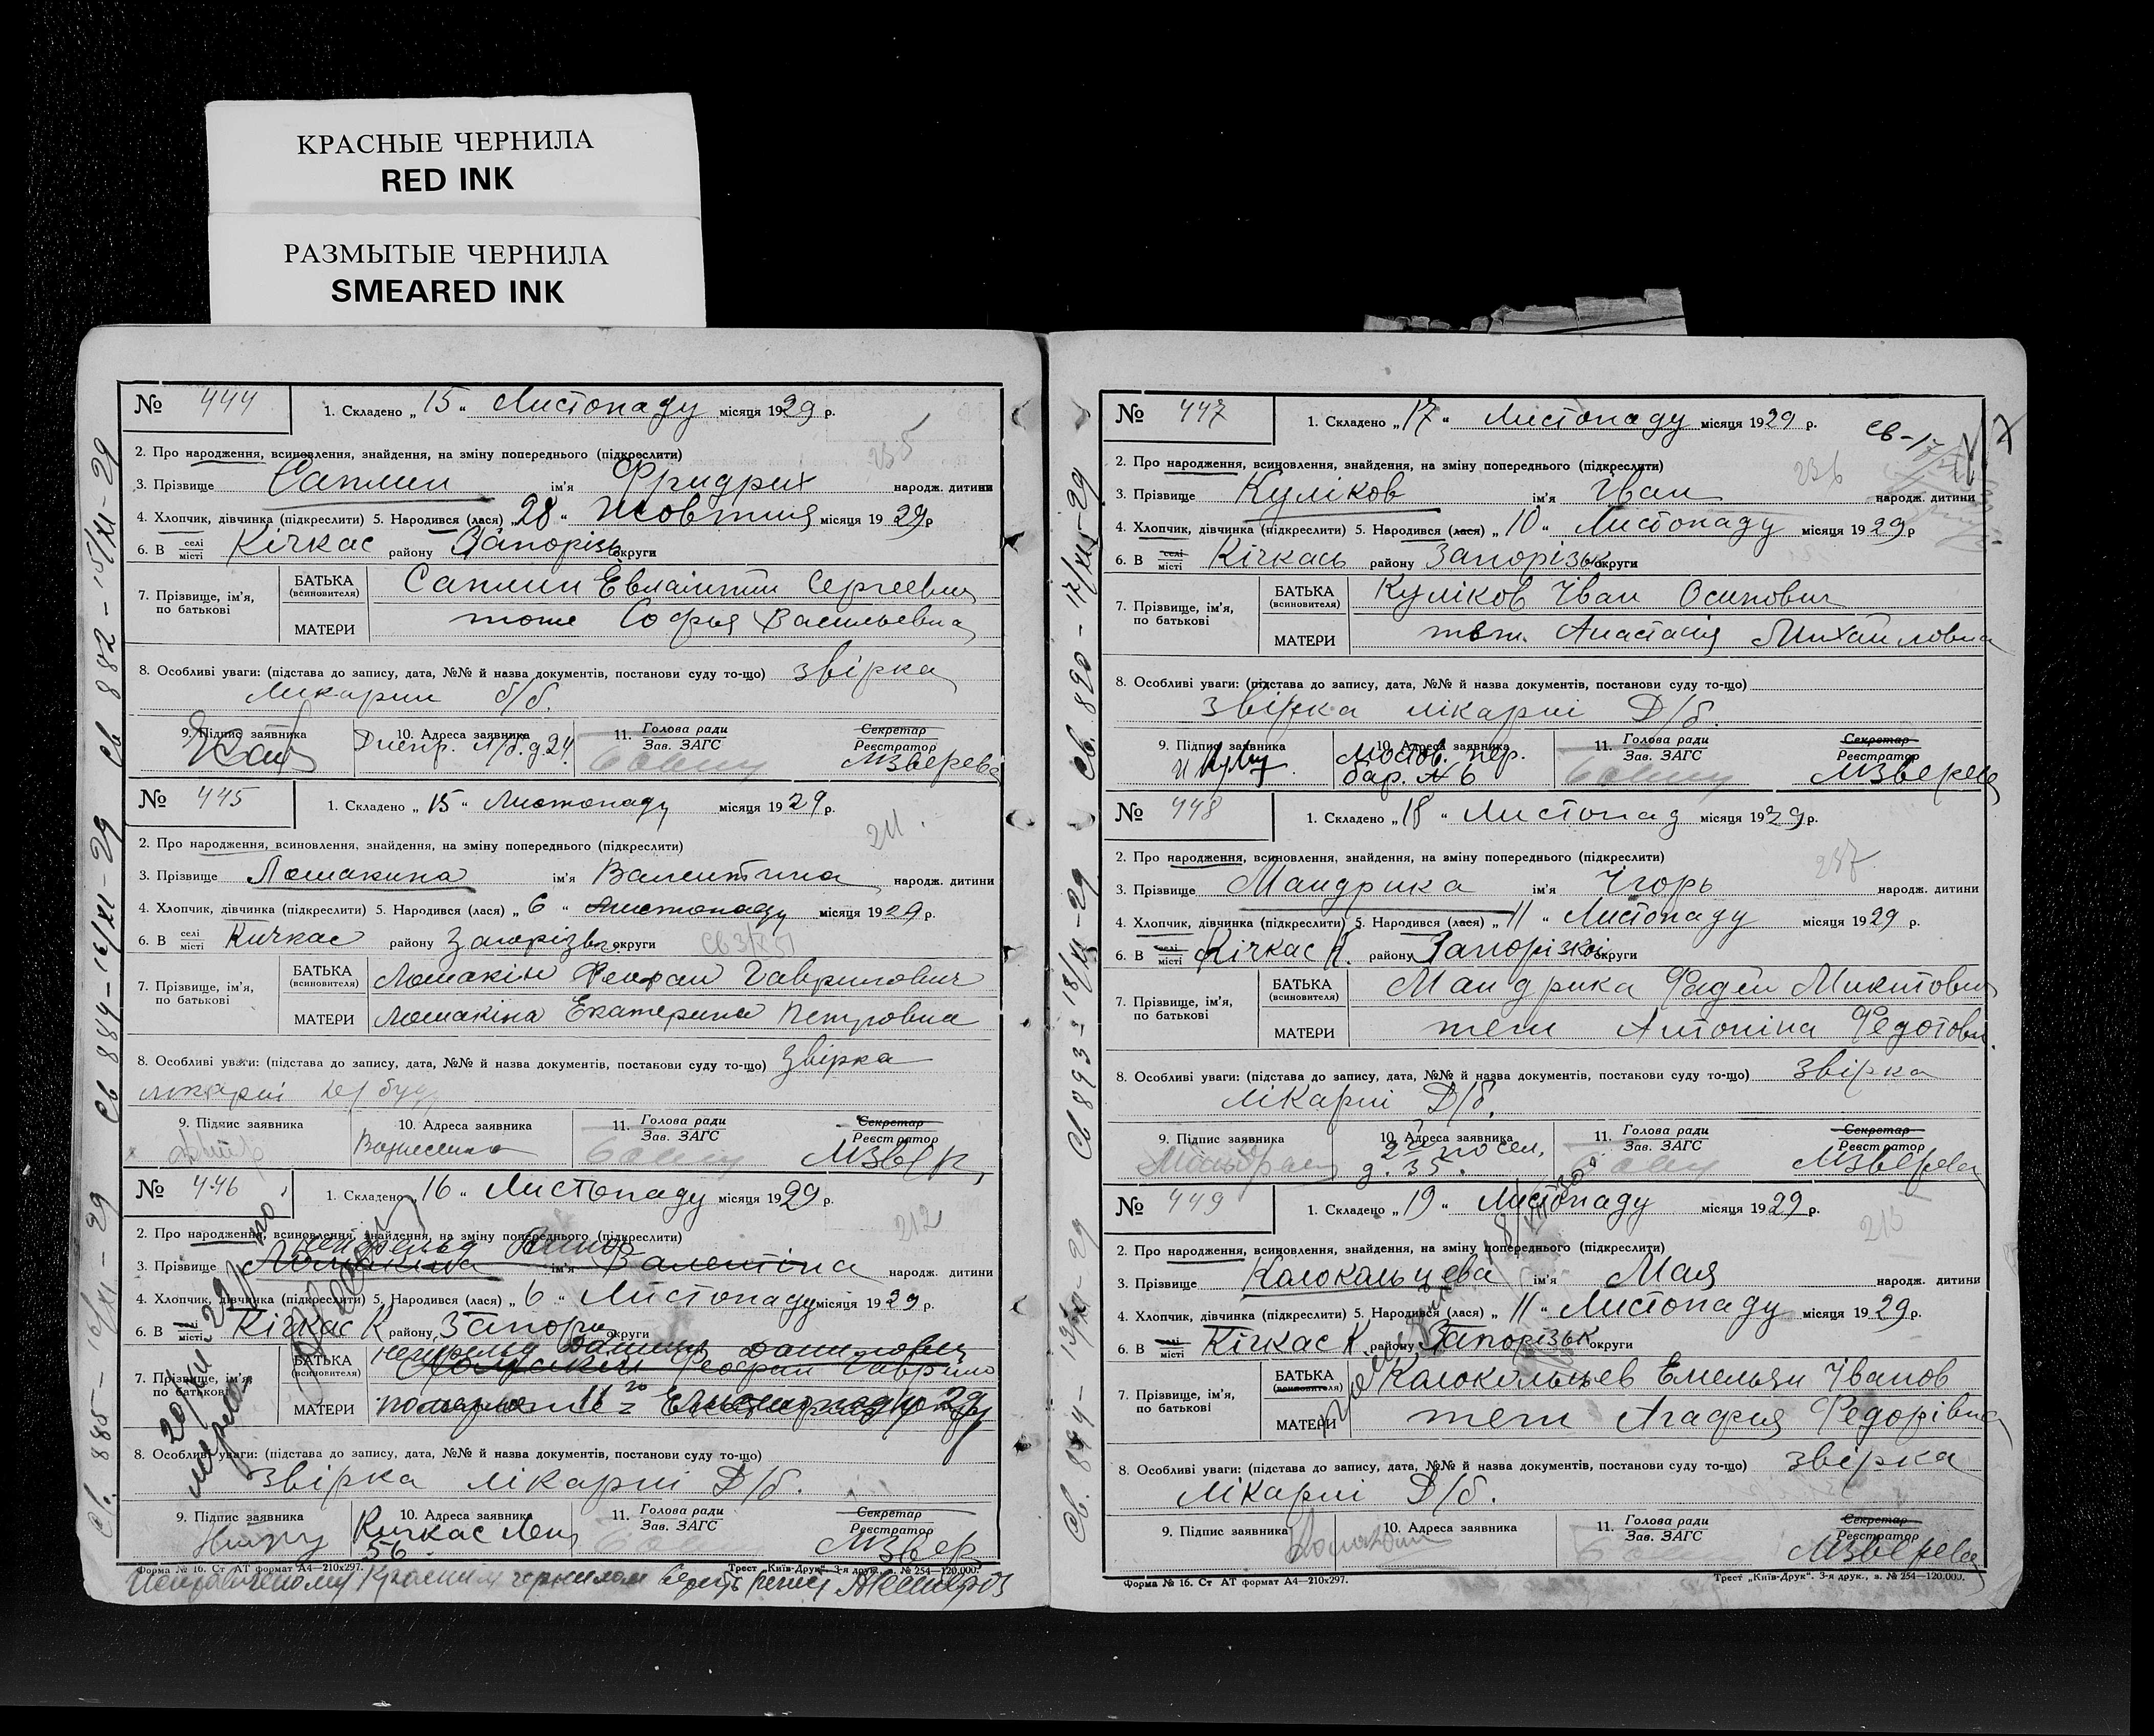 КРАСНЫЕ ЧЕРНИЛА
RED INK
РАЗМЫТЫЕ ЧЕРНИЛА
SMEARED INK
№ 444 1. Складено „15“ Листопаду місяця 1929 р.
235
2. Про народження, всиновлення, знайдення, на зміну попереднього (підкреслити)
3. Прізвище Саплин ім'я Фридрих народж. дитини
4. Хлопчик, дівчинка (підкреслити) 5. Народився (лася) „28“ Жовтня місяця 1929р
6. В селі місті Кічкас району Запорізь округи
7. Прізвище, ім'я, по батькові
БАТЬКА (всиновителя) Саплин Сергеевич
МАТЕРИ тоже Софья Васильевна
8. Особливі уваги: (підстава до запису, дата, №№ й назва документів, постанови суду то-що) звірка
Ликарни б/б.
9. Підпис заявника 10. Адреса заявника 11. Голова ради Зав. ЗАГС Секретар Реєстратор
Днепр. д. 24 МЗверева
Св 882 - 15/XI - 29
№ 445 1. Складено „15“ Листопаду місяця 1929 р.
211.
2. Про народження, всиновлення, знайдення, на зміну попереднього (підкреслити)
3. Прізвище Ломакина ім'я Валентина народж. дитини
4. Хлопчик, дівчинка (підкреслити) 5. Народився (лася) „6“ Листопаду місяця 1929 р.
6. В селі місті Кичкас району Запорізьк округи
7. Прізвище, ім'я, по батькові
БАТЬКА (всиновителя) Ломакін Феофан Гаврилович
МАТЕРИ Ломакіна Екатерина Петровна
8. Особливі уваги: (підстава до запису, дата, №№ й назва документів, постанови суду то-що) Звірка
лікарні
9. Підпис заявника 10. Адреса заявника 11. Голова ради Зав. ЗАГС Секретар Реєстратор
Вознесенка МЗвер
Св 884 - 16/XI - 29
№ 446 1. Складено „16“ Листопаду місяця 1929 р.
212
2. Про народження, всиновлення, знайдення, на зміну попереднього (підкреслити)
3. Прізвище Ломакина ім'я Валентіна народж. дитини
4. Хлопчик, дівчинка (підкреслити) 5. Народився (лася) „6“ Листопаду місяця 1929 р.
6. В селі місті Кічкас К району Запорізь округи
7. Прізвище, ім'я, по батькові
Данилович
БАТЬКА (всиновителя) Ломакин Феофан Гаврило
МАТЕРИ
8. Особливі уваги: (підстава до запису, дата, №№ й назва документів, постанови суду то-що)
Звірка лікарні Д/б.
9. Підпис заявника 10. Адреса заявника 11. Голова ради Зав. ЗАГС Секретар Реєстратор
Кичкас Лен 56 МЗвер
Св. 885 - 16/XI - 29
Форма № 16. Ст АТ формат А4—210х297. Трест „Київ-Друк“. 3-я друк., з. № 254—120.000.
Красним чернилом верить
№ 447 1. Складено „17“ Листопаду місяця 1929 р.
236
2. Про народження, всиновлення, знайдення, на зміну попереднього (підкреслити)
3. Прізвище Куліков ім'я Іван народж. дитини
4. Хлопчик, дівчинка (підкреслити) 5. Народився (лася) „10“ Листопаду місяця 1929 р
6. В селі місті Кічкась району Запорізьк округи
7. Прізвище, ім'я, по батькові
БАТЬКА (всиновителя) Куліков Іван Осипович
МАТЕРИ теж. Анастасія Михайловна
8. Особливі уваги: (підстава до запису, дата, №№ й назва документів, постанови суду то-що)
Звірка лікарні Д/б.
9. Підпис заявника 10. Адреса заявника 11. Голова ради Зав. ЗАГС Секретар Реєстратор
Мостов. пер. бар. № 6 МЗверева
№ 448 1. Складено „18“ Листопад місяця 1929 р.
237
2. Про народження, всиновлення, знайдення, на зміну попереднього (підкреслити)
3. Прізвище Мандрика ім'я Ігорь народж. дитини
4. Хлопчик, дівчинка (підкреслити) 5. Народився (лася) „11“ Листопаду місяця 1929 р.
6. В селі місті Кічкас К. району Запорізкої округи
7. Прізвище, ім'я, по батькові
БАТЬКА (всиновителя) Мандрика Фадей Микитович
МАТЕРИ теж Антоніна Федотовн.
8. Особливі уваги: (підстава до запису, дата, №№ й назва документів, постанови суду то-що) звірка
Лікарні Д/б.
9. Підпис заявника 10. Адреса заявника 11. Голова ради Зав. ЗАГС Секретар Реєстратор
посел. д. 35. МЗверева
№ 449 1. Складено „19“ Листопаду місяця 1929 р.
213
2. Про народження, всиновлення, знайдення, на зміну попереднього (підкреслити)
3. Прізвище Колокольцева ім'я Мая народж. дитини
4. Хлопчик, дівчинка (підкреслити) 5. Народився (лася) „11“ Листопаду місяця 1929 р.
6. В селі місті Кічкас К. району Запорізьк округи
7. Прізвище, ім'я, по батькові
БАТЬКА (всиновителя) Колокольцев Емельян Іванов
МАТЕРИ теж Агафия Федорівна
8. Особливі уваги: (підстава до запису, дата, №№ й назва документів, постанови суду то-що) звірка
Лікарні Д/б.
9. Підпис заявника 10. Адреса заявника 11. Голова ради Зав. ЗАГС Секретар Реєстратор
МЗверева
Форма № 16. Ст АТ формат А4—210х297. Трест „Київ-Друк“. 3-я друк., з. № 254—120.000.